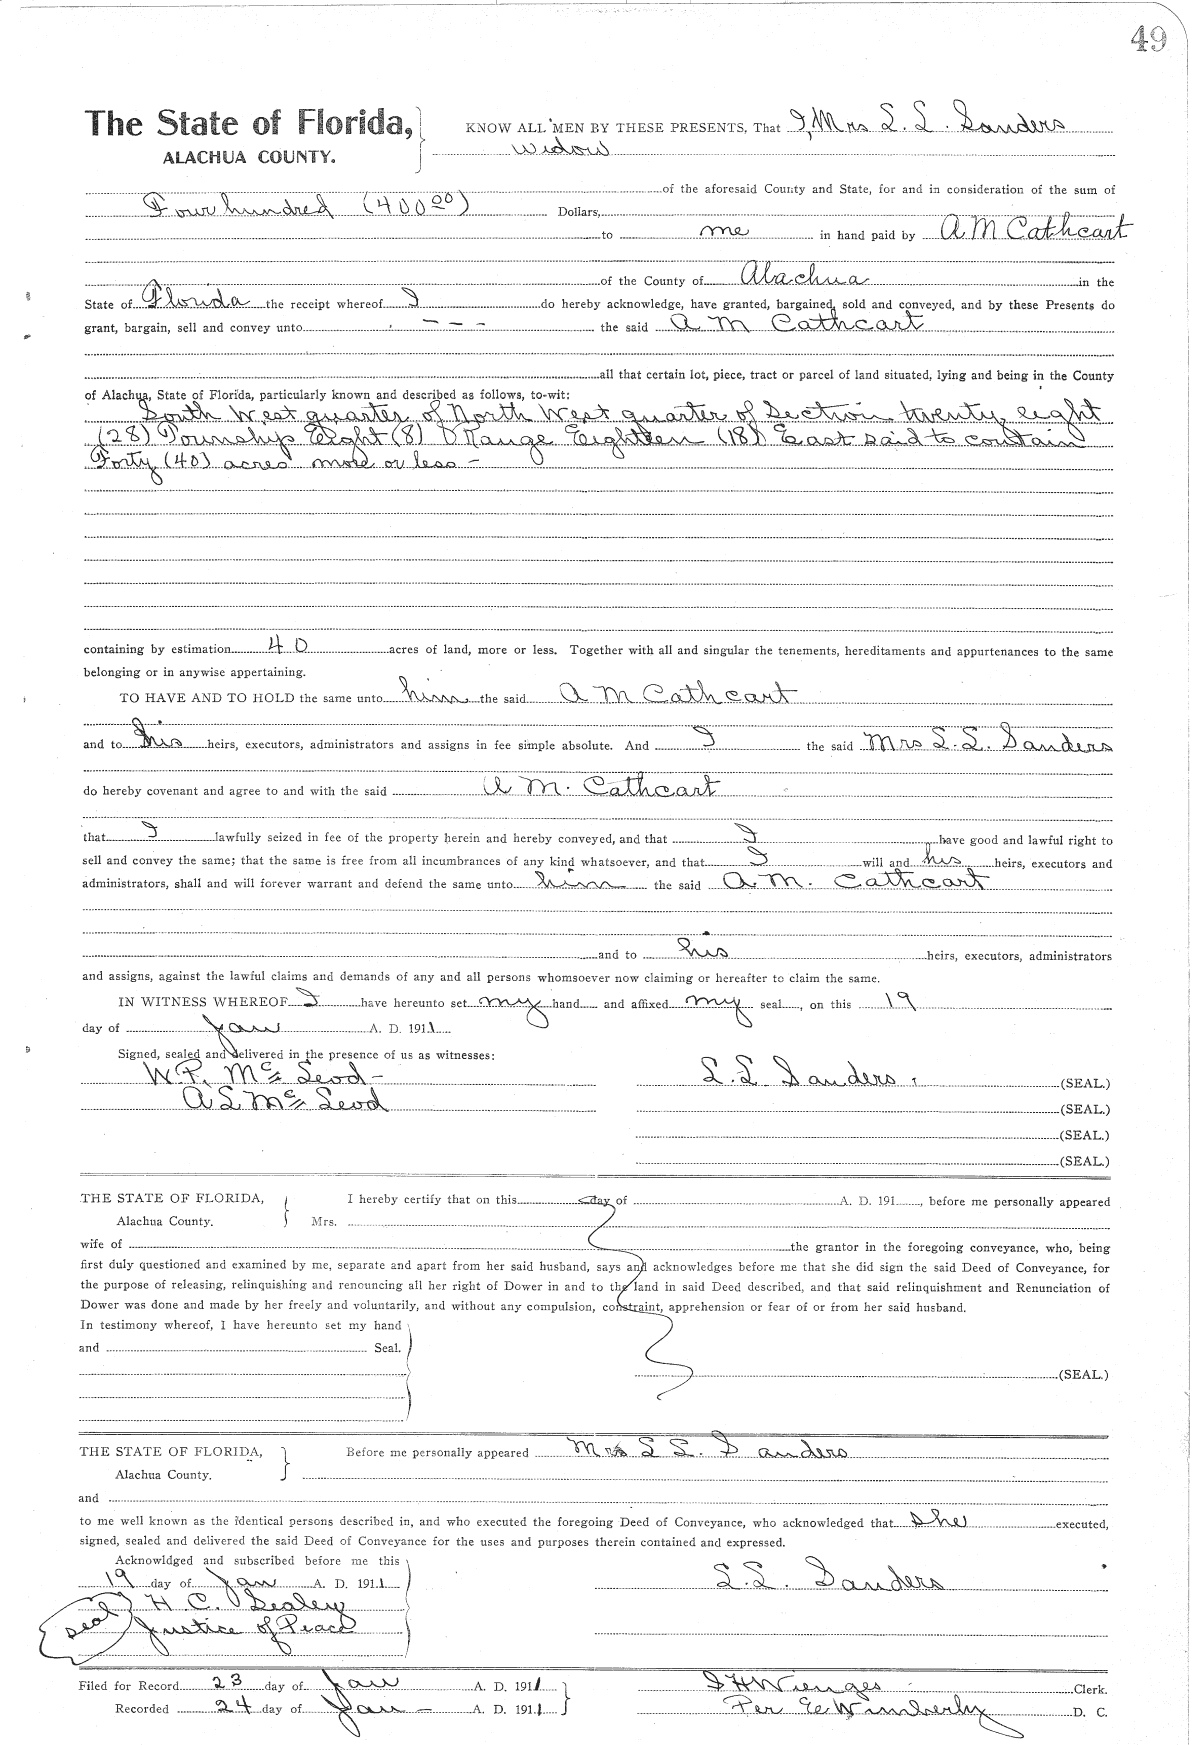 49
The State of Florida,
ALACHUA COUNTY.
KNOW ALL MEN BY THESE PRESENTS, That I, Mrs S. S. Sanders
widow
of the aforesaid County and State, for and in consideration of the sum of
Four hundred (400 00) Dollars,
to me in hand paid by A M Cathcart
of the County of Alachua in the
State of Florida the receipt whereof I do hereby acknowledge, have granted, bargained, sold and conveyed, and by these Presents do
grant, bargain, sell and convey unto - - - the said A M Cathcart
all that certain lot, piece, tract or parcel of land situated, lying and being in the County
of Alachua, State of Florida, particularly known and described as follows, to-wit:
South West quarter of North West quarter of Section twenty eight
(28) Township Eight (8) Range Eighteen (18) East said to contain
Forty (40) acres more or less -
containing by estimation 40 acres of land, more or less. Together with all and singular the tenements, hereditaments and appurtenances to the same
belonging or in anywise appertaining.
TO HAVE AND TO HOLD the same unto him the said A M Cathcart
and to his heirs, executors, administrators and assigns in fee simple absolute. And I the said Mrs S. S. Sanders
do hereby covenant and agree to and with the said A M. Cathcart
that I lawfully seized in fee of the property herein and hereby conveyed, and that I have good and lawful right to
sell and convey the same; that the same is free from all incumbrances of any kind whatsoever, and that I will and his heirs, executors and
administrators, shall and will forever warrant and defend the same unto him the said A. M. Cathcart
and to his heirs, executors, administrators
and assigns, against the lawful claims and demands of any and all persons whomsoever now claiming or hereafter to claim the same.
IN WITNESS WHEREOF I have hereunto set my hand and affixed my seal, on this 19
day of Jan A. D. 1911
Signed, sealed and delivered in the presence of us as witnesses:
W. P. Mc Leod -
S. S Sanders (SEAL.)
A S Mc Leod
(SEAL.)
(SEAL.)
(SEAL.)
THE STATE OF FLORIDA,
Alachua County.
I hereby certify that on this day of A. D. 191, before me personally appeared
Mrs.
wife of the grantor in the foregoing conveyance, who, being
first duly questioned and examined by me, separate and apart from her said husband, says and acknowledges before me that she did sign the said Deed of Conveyance, for
the purpose of releasing, relinquishing and renouncing all her right of Dower in and to the land in said Deed described, and that said relinquishment and Renunciation of
Dower was done and made by her freely and voluntarily, and without any compulsion, constraint, apprehension or fear of or from her said husband.
In testimony whereof, I have hereunto set my hand
and Seal.
(SEAL.)
THE STATE OF FLORIDA,
Alachua County.
Before me personally appeared Mrs S S. Sanders
and
to me well known as the identical persons described in, and who executed the foregoing Deed of Conveyance, who acknowledged that she executed,
signed, sealed and delivered the said Deed of Conveyance for the uses and purposes therein contained and expressed.
Acknowldged and subscribed before me this
19 day of Jan A. D. 1911
S. S. Sanders
H. C. Sealey
seal Justice of Peace
Filed for Record 23 day of Jan A. D. 1911
S H Wienges Clerk.
Recorded 24 day of Jan - A. D. 1911
Per E Wimberly D. C.